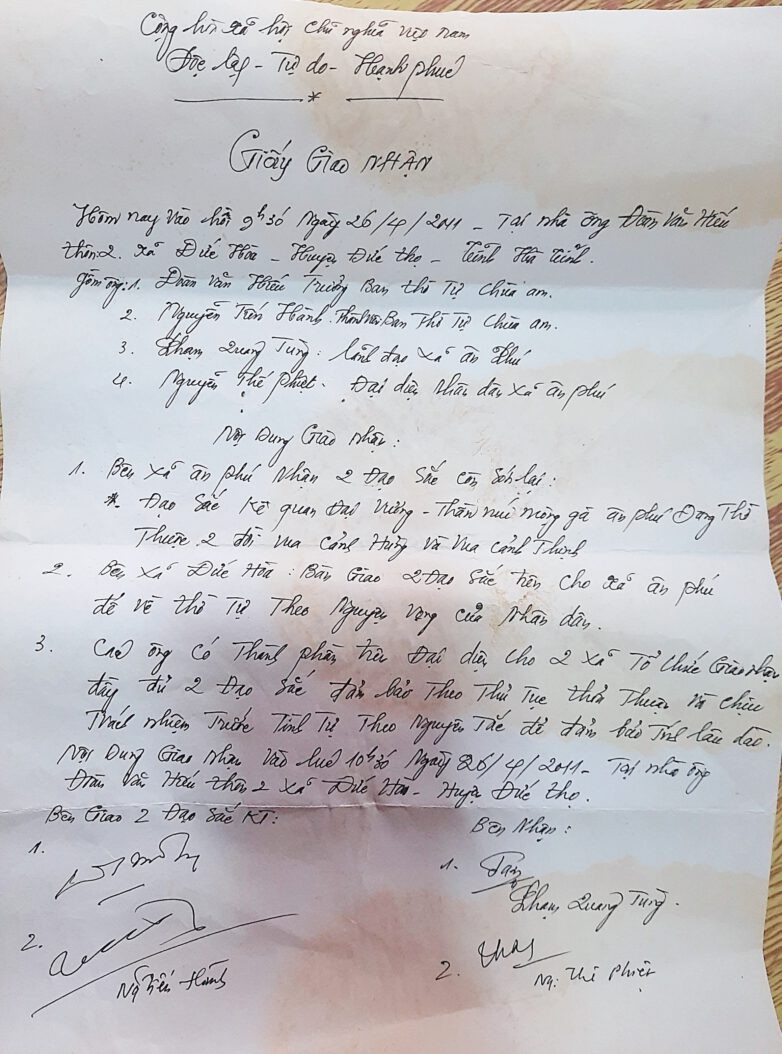 Cộng hòa xã hội chủ nghĩa việt nam
Độc lập - Tự do - Hạnh phúc
Giấy Giao NHẬN
Hôm nay vào hồi 9h30 Ngày 26/4/2011 - Tại nhà ông Đoàn Văn Hiếu
thôn: 2. xã Đức Hòa - Huyện Đức thọ - tỉnh Hà tĩnh.
gồm ông: 1. Đoàn Văn Hiếu Trưởng Ban thờ Tự chùa am.
2. Nguyễn Tiến Hành. Thành viên Ban Thờ Tự chùa am.
3. Phạm Quang Tùng: Lãnh đạo xã ân Phú
4. Nguyễn Thế Phiệt. Đại diện nhân dân xã ân phú
Nội Dung Giao nhận:
1. Bên xã ân phú nhận 2 Đạo Sắc còn sót lại:
*. Đạo Sắc Kê quan Đại Vương - Thần núi mồng gà ân phú Đang Thờ
Thuộc 2 đời vua cảnh Hưng và vua cảnh Thịnh
2. Bên xã Đức Hòa: Bàn Giao 2 Đạo Sắc trên cho xã ân phú
để về thờ Tự Theo Nguyện vọng của nhân dân.
3. Các ông có Thành phần trên Đại diện cho 2 xã Tổ chức Giao nhận
đầy đủ 2 Đạo Sắc đảm bảo Theo Thủ Tục thỏa Thuận và chịu
Trách nhiệm Trước Tự Theo Nguyên Tắc để đảm bảo lâu dài.
Nội Dung Giao nhận vào lúc 10h30 Ngày 26/4/2011 - Tại nhà ông
Đoàn Văn Hiếu thôn 2 xã Đức Hòa - Huyện Đức thọ.
Bên Giao 2 Đạo Sắc KT:
Bên Nhận:
1.
1.
Phạm Quang Tùng.
2.
Ng Tiến Hành
2.
Ng: Thế Phiệt